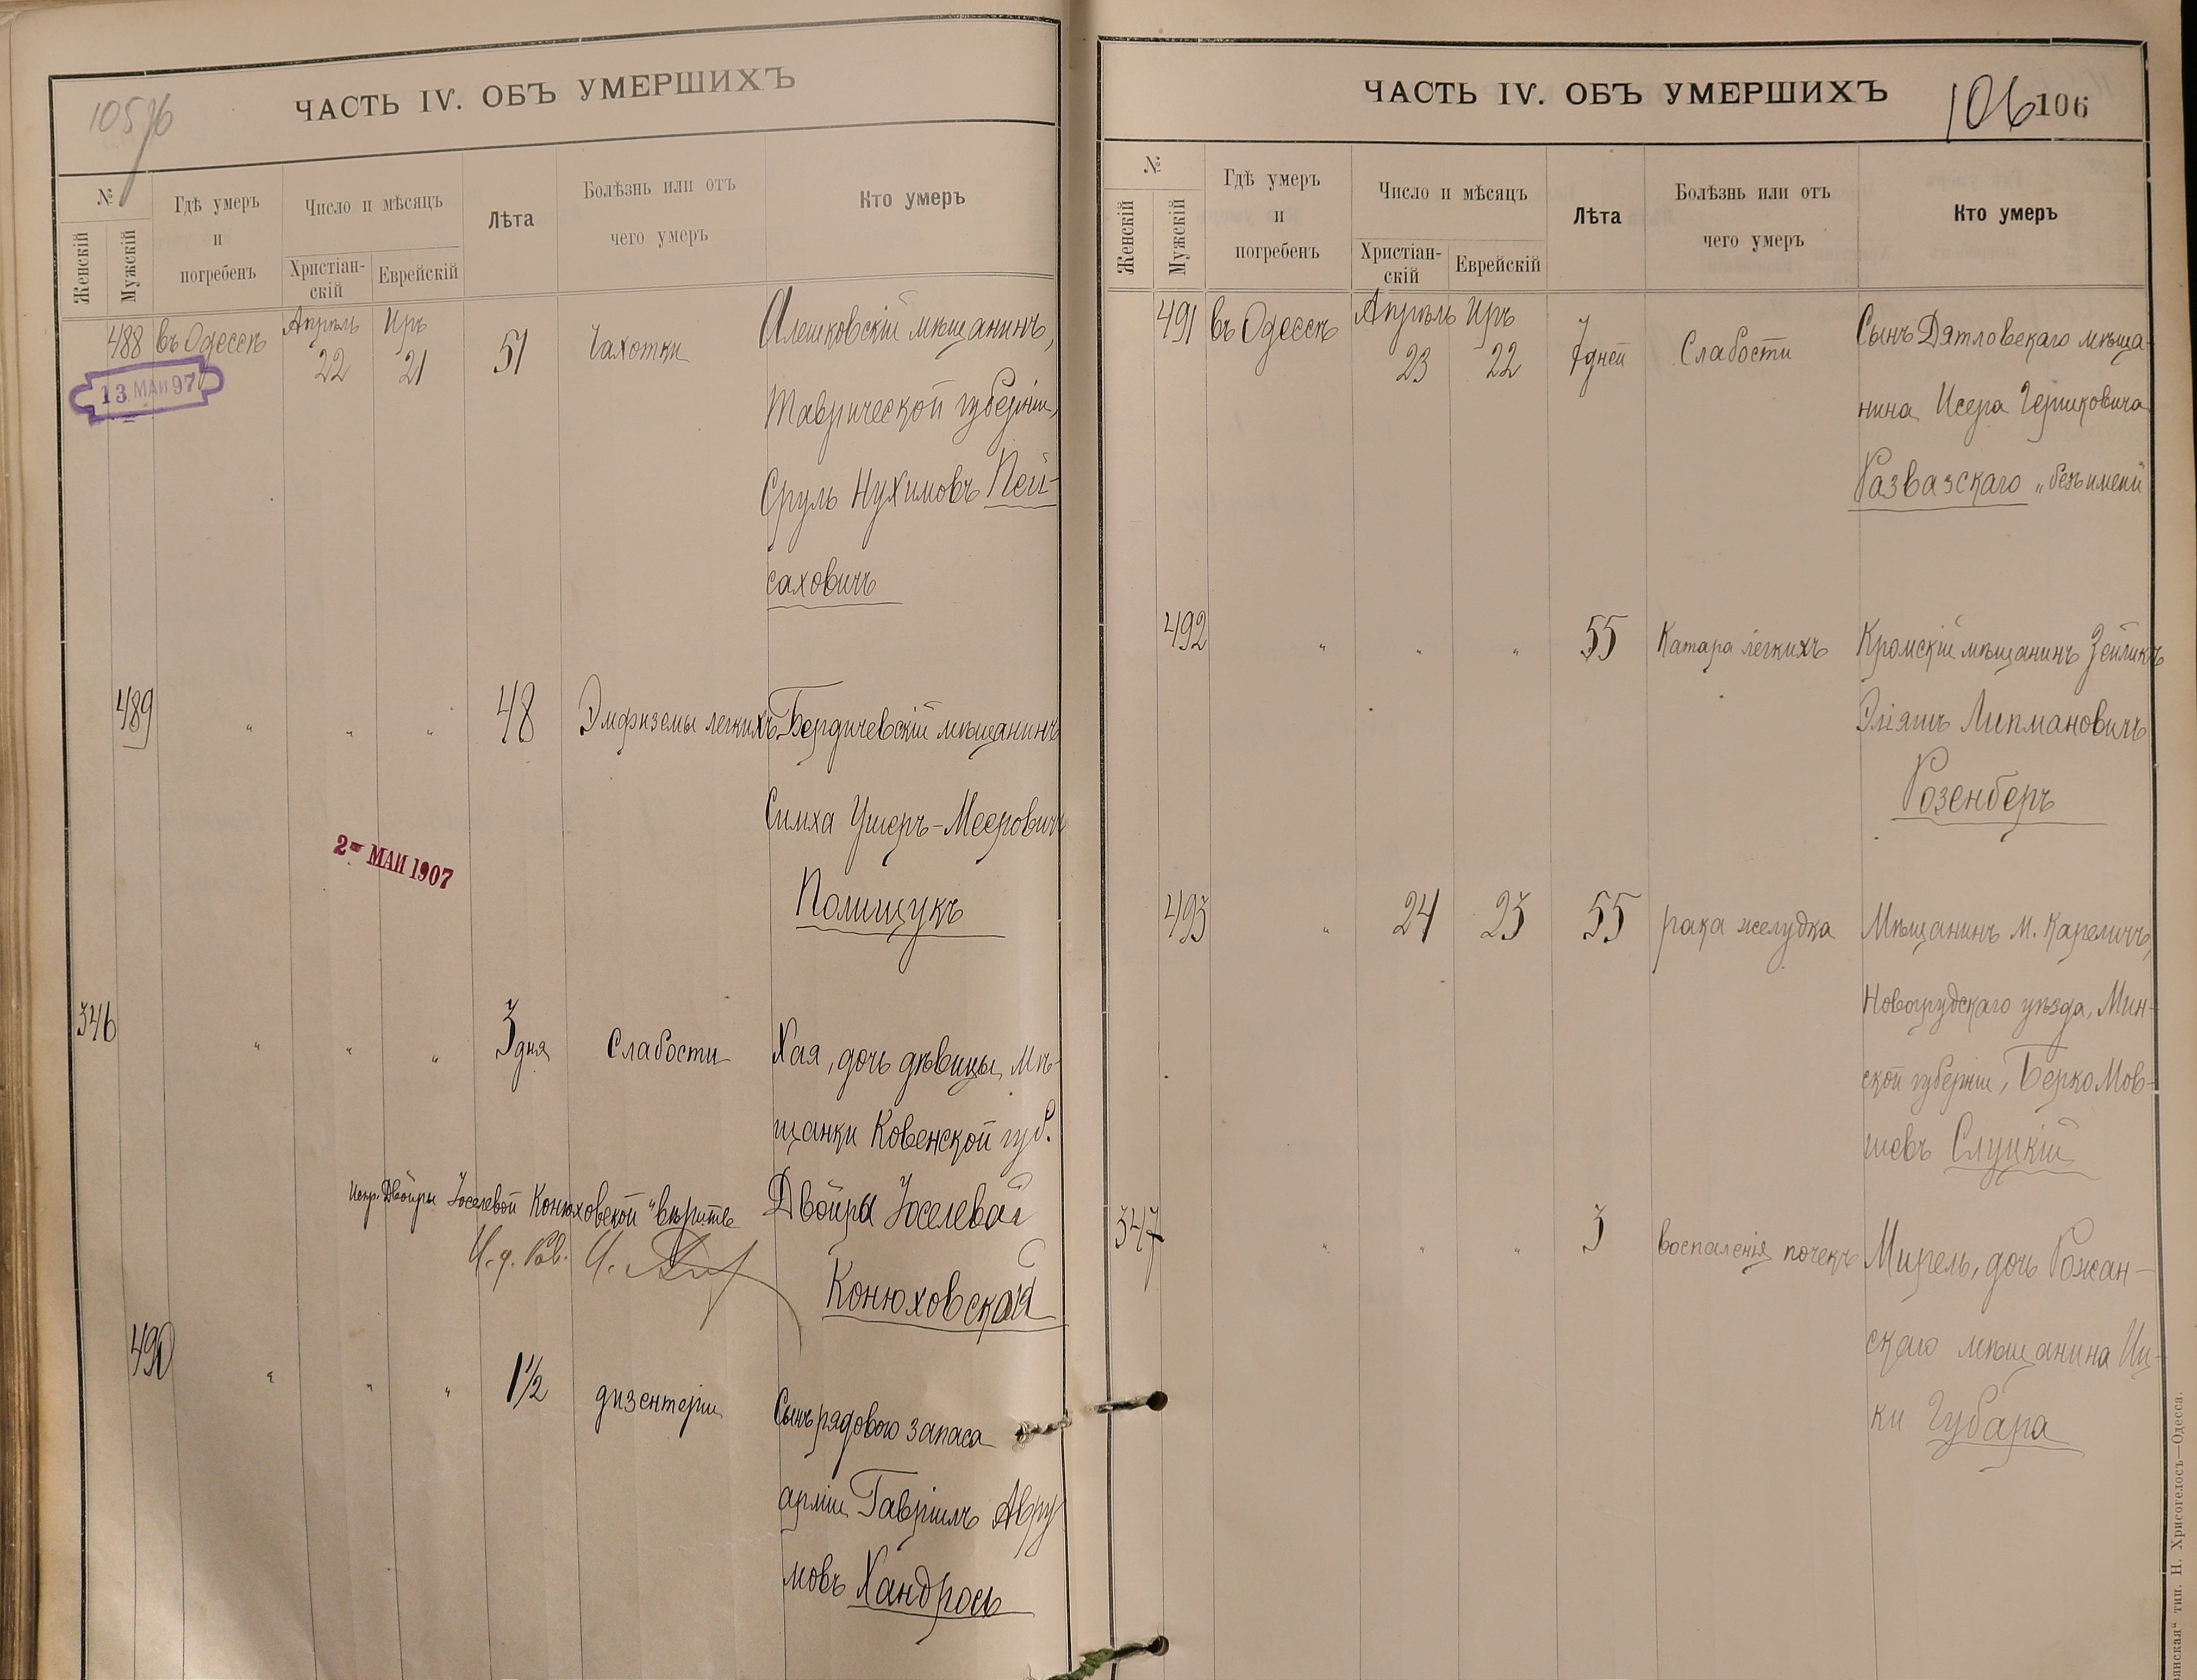 105 96
ЧАСТЬ IV. ОБЪ УМЕРШИХЪ
№
Женскій
Мужскій
Гдѣ умеръ
и
погребенъ
Число и мѣсяцъ
Христіан-
скій
Еврейскій
Лѣта
Болѣзнь или отъ
чего умеръ
Кто умеръ
488 въ Одессѣ Апрѣль 22 Иръ 21 51 Чахотки Алешковскій мѣщанинъ,
13 МАИ 97
Таврической губерніи,
Сруль Нухимовъ Пей-
саховичъ
489 " " " 48 Эмфиземы легкихъ Бердичевскій мѣщанинъ
Симха Ушеръ-Мееровичъ
2 МАИ 1907
Полищукъ
346 " " " 3 дня Слабости Хая, дочь дѣвицы, мѣ-
щанки Ковенской губ.
Двойра Іоселевой
Испр. Двойры Іоселевой Конюховской "вѣрить
И. д. Рав.
Конюховская
490 " " " 1½ дизентеріи Сынъ рядового запаса
арміи Гавріилъ Авру
мовъ Хандросъ
ЧАСТЬ IV. ОБЪ УМЕРШИХЪ
106 106
№
Женскій
Мужскій
Гдѣ умеръ
и
погребенъ
Число и мѣсяцъ
Христіан-
скій
Еврейскій
Лѣта
Болѣзнь или отъ
чего умеръ
Кто умеръ
491 въ Одессѣ Апрѣль 23 Иръ 22 7 дней Слабости Сынъ Дятловскаго мѣща-
нина Исера Гершковича
Развазскаго "безъ имени"
492 " " " 55 Катара легкихъ Кромскій мѣщанинъ Зейликъ
Эліяшъ Липмановичъ
Розенберъ
493 " 24 23 55 рака желудка Мѣщанинъ м. Кареличъ,
Новогрудскаго уѣзда, Мин-
ской губерніи, Берко Мов-
шевъ Слуцкій
347 " " " 3 воспаленія почекъ Мирель, дочь Рожан-
скаго мѣщанина Иц-
ки Губара
тип. Н. Хрисогелосъ—Одесса.